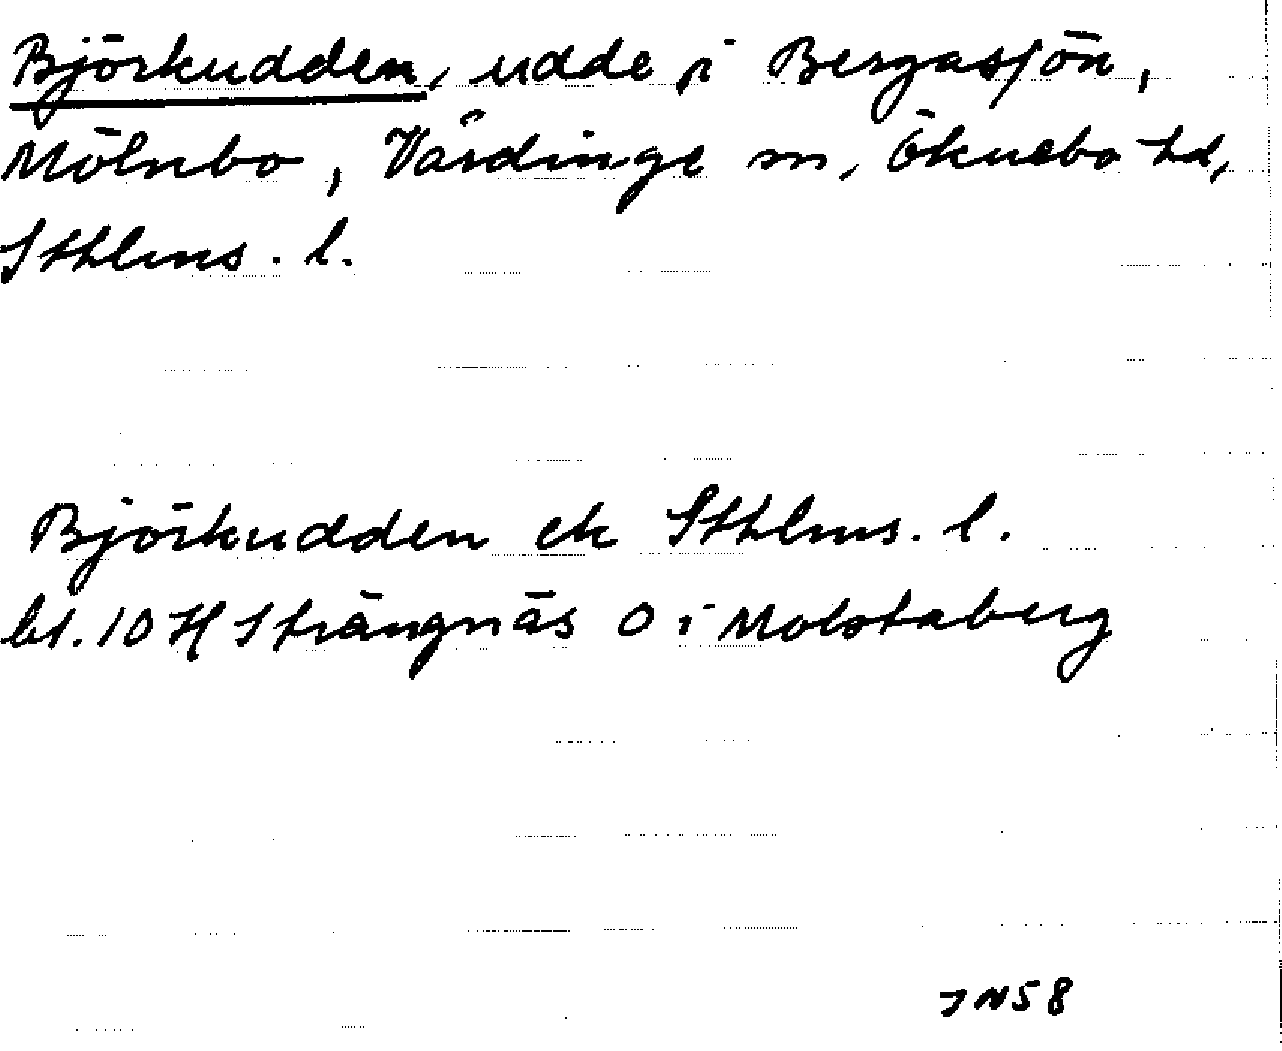 Björkudden, udde i Bergasjön,
Mölnbo, Vårdinge sn, Öknebo hd,
Sthlms. l.
Björkudden ek Sthlms. l.
bl. 10 H Strängnäs O i Molstaberg
JN58